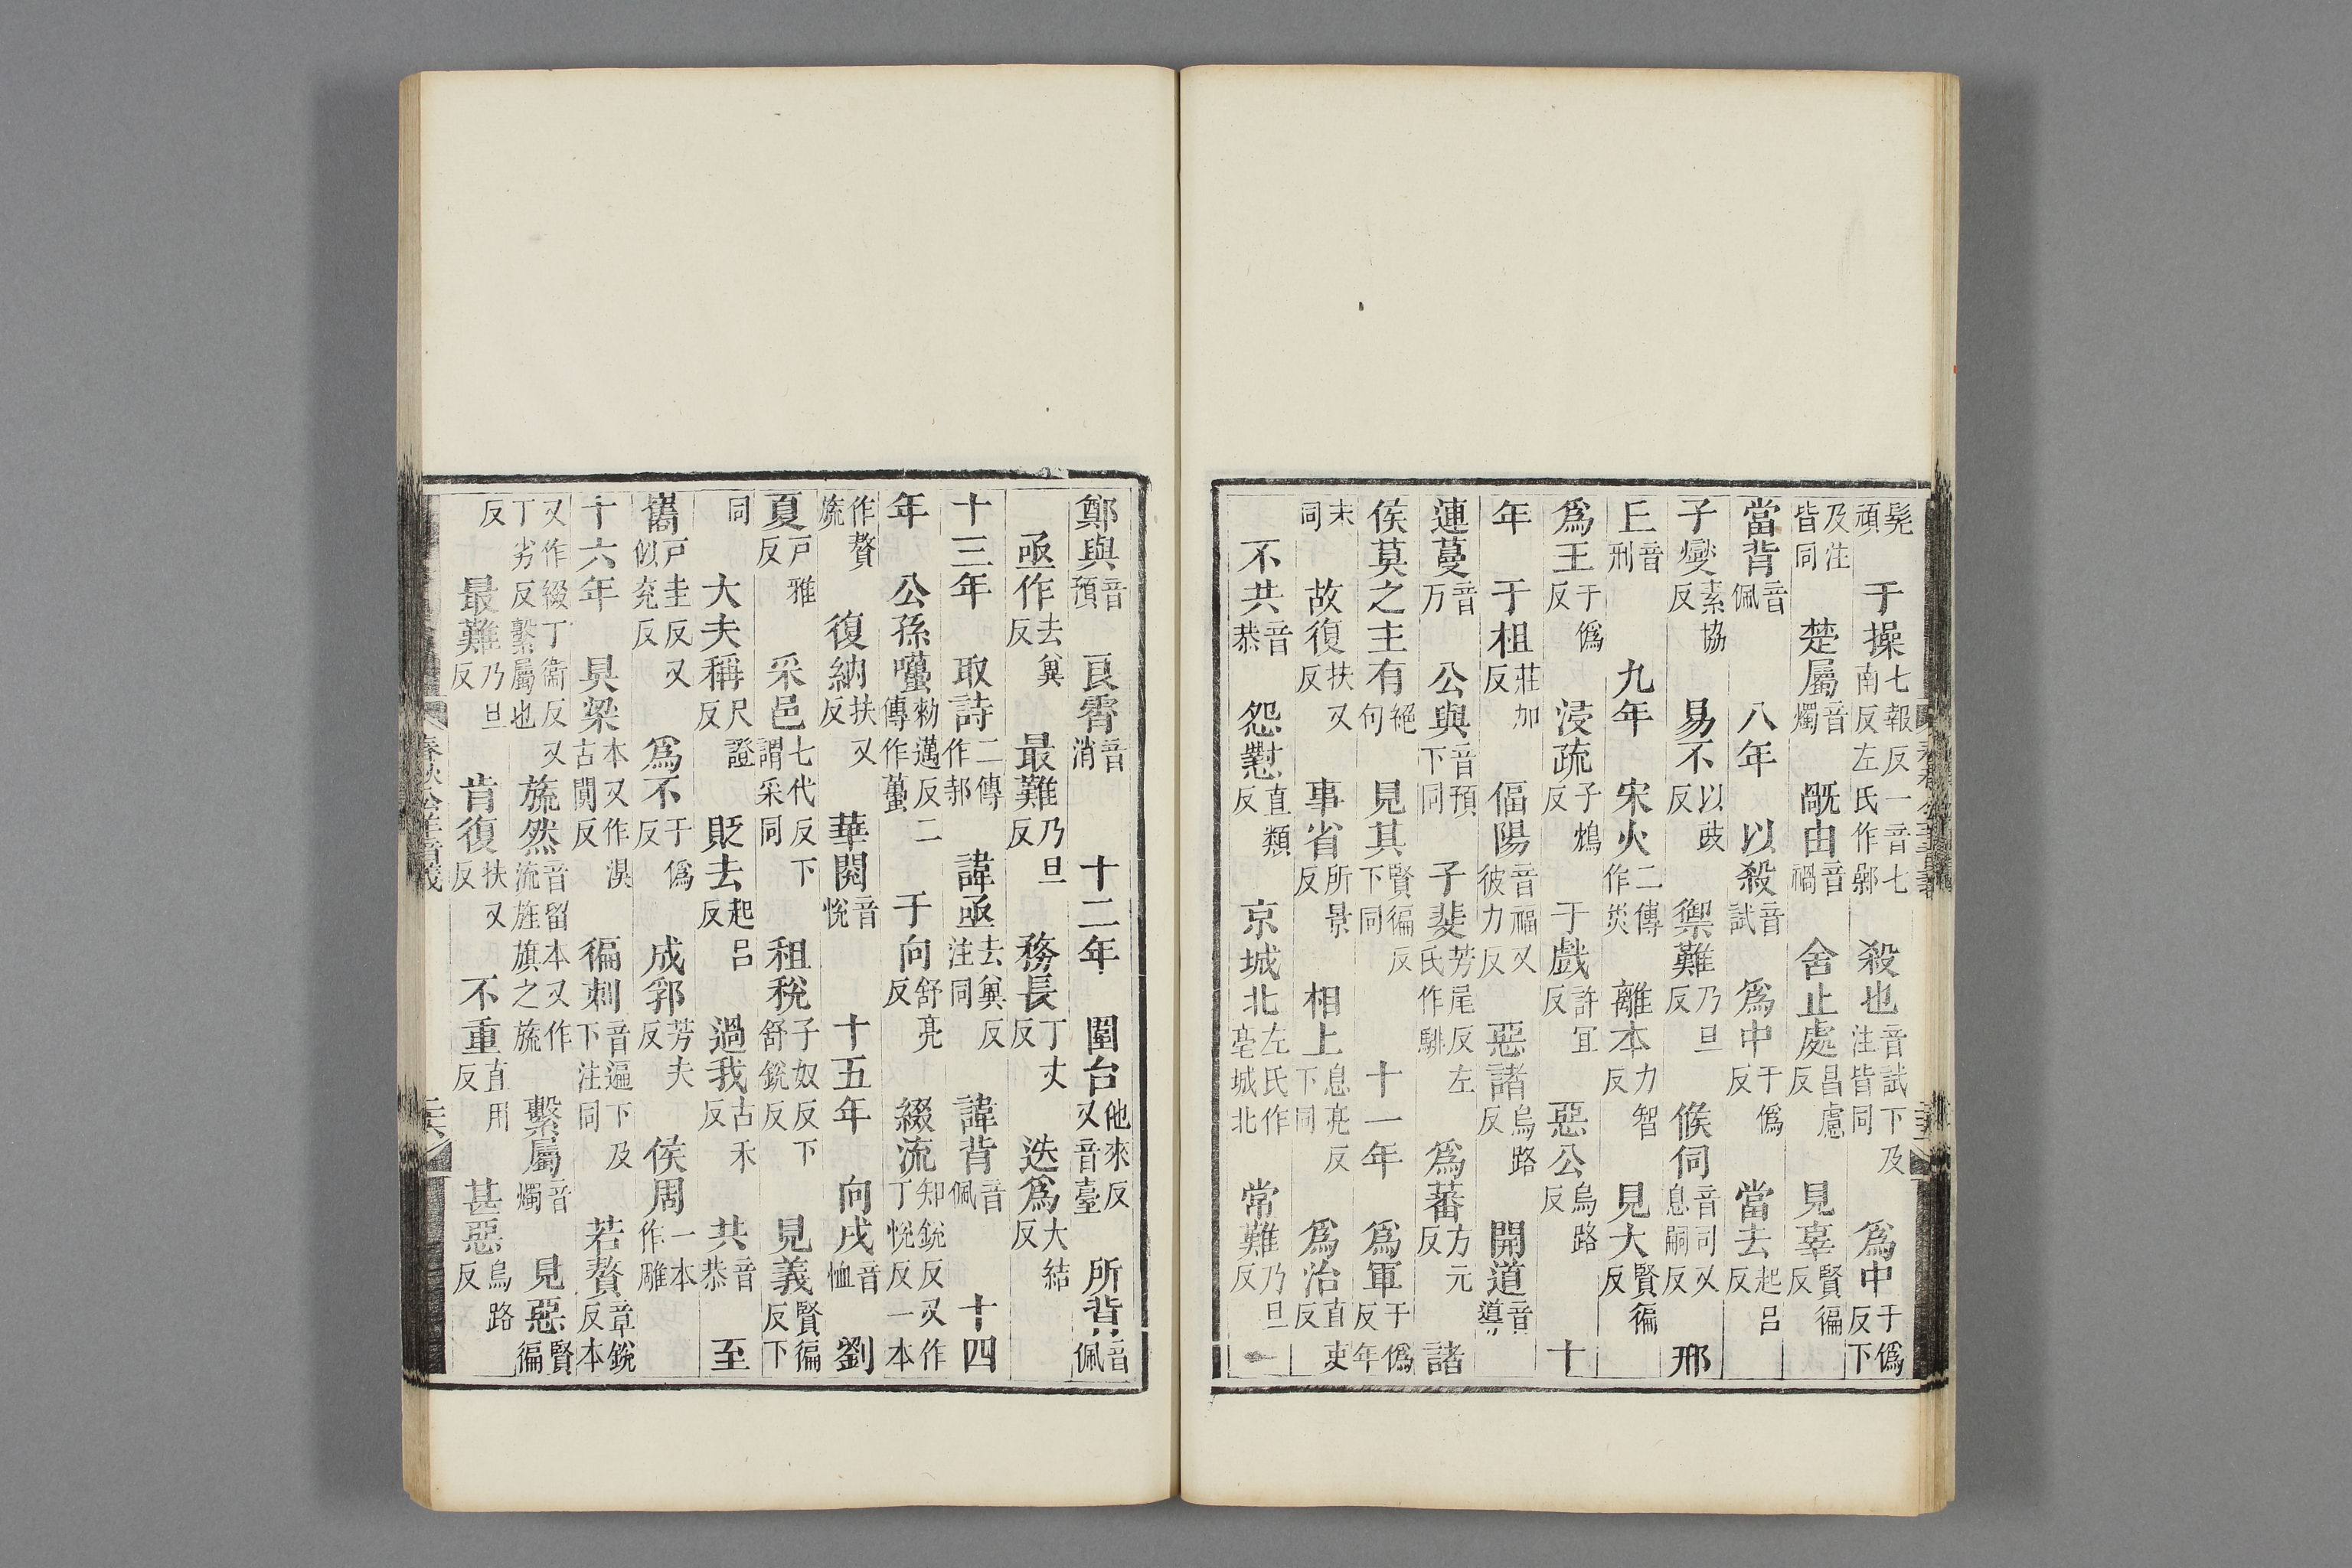 髡頑 于操七報反一音七南反左氏作鄵 殺也音試下及注皆同 爲中于僞反下
及注皆同 楚屬音燭 旤由音禍 舍止處昌慮反 見辜賢徧反
當背音佩 八年 以殺音試 爲中于僞反 當去起呂反
子燮素協反 易不以豉反 禦難乃旦反 候伺音司又息嗣反 邢
丘音刑 九年 宋火二傳作災 離本力智反 見大賢徧反
爲王于僞反 浸疏子鴆反 于戲許宜反 惡公烏路反 十
年 于柤莊加反 偪陽音福又彼力反 惡諸烏路反 開道音導
連蔓音万 公與音預下同 子斐芳尾反左氏作騑 爲蕃方元反 諸
侯莫之主有絕句 見其賢徧反下同 十一年 爲軍于僞反年
末同 故復扶又反 事省所景反 相上息亮反下同 爲治直吏反
不共音恭 怨懟直類反 京城北左氏作亳城北 常難乃旦反
鄭與音預 良霄音消 十二年 圍台他來反又音臺 所背音佩
亟作去冀反 最難乃旦反 務長丁丈反 迭爲大結反
十三年 取詩二傳作邿 諱亟去冀反注同 諱背音佩 十四
年 公孫囆勑邁反二傳作蠆 于向舒亮反 綴流知銳反又丁悅反一本作
作贅旒 復納扶又反 華閱音悅 十五年 向戌音恤 劉
夏戶雅反 采邑七代反下謂采同 租稅子奴反下舒銳反 見義賢徧反下
同 大夫稱尺證反 貶去起呂反 過我古禾反 共音恭 至
巂戶圭反又似兖反 爲不于僞反 成郛芳夫反 侯周一本作雕
十六年 㺽梁本又作湨古闃反 徧刺音遍下及下注同 若贅章銳反本
又作綴丁衞反又丁劣反繫屬也 旒然音留本又作流旌旗之旒 繫屬音燭 見惡賢徧
反 最難乃旦反 肯復扶又反 不重直用反 甚惡烏路反